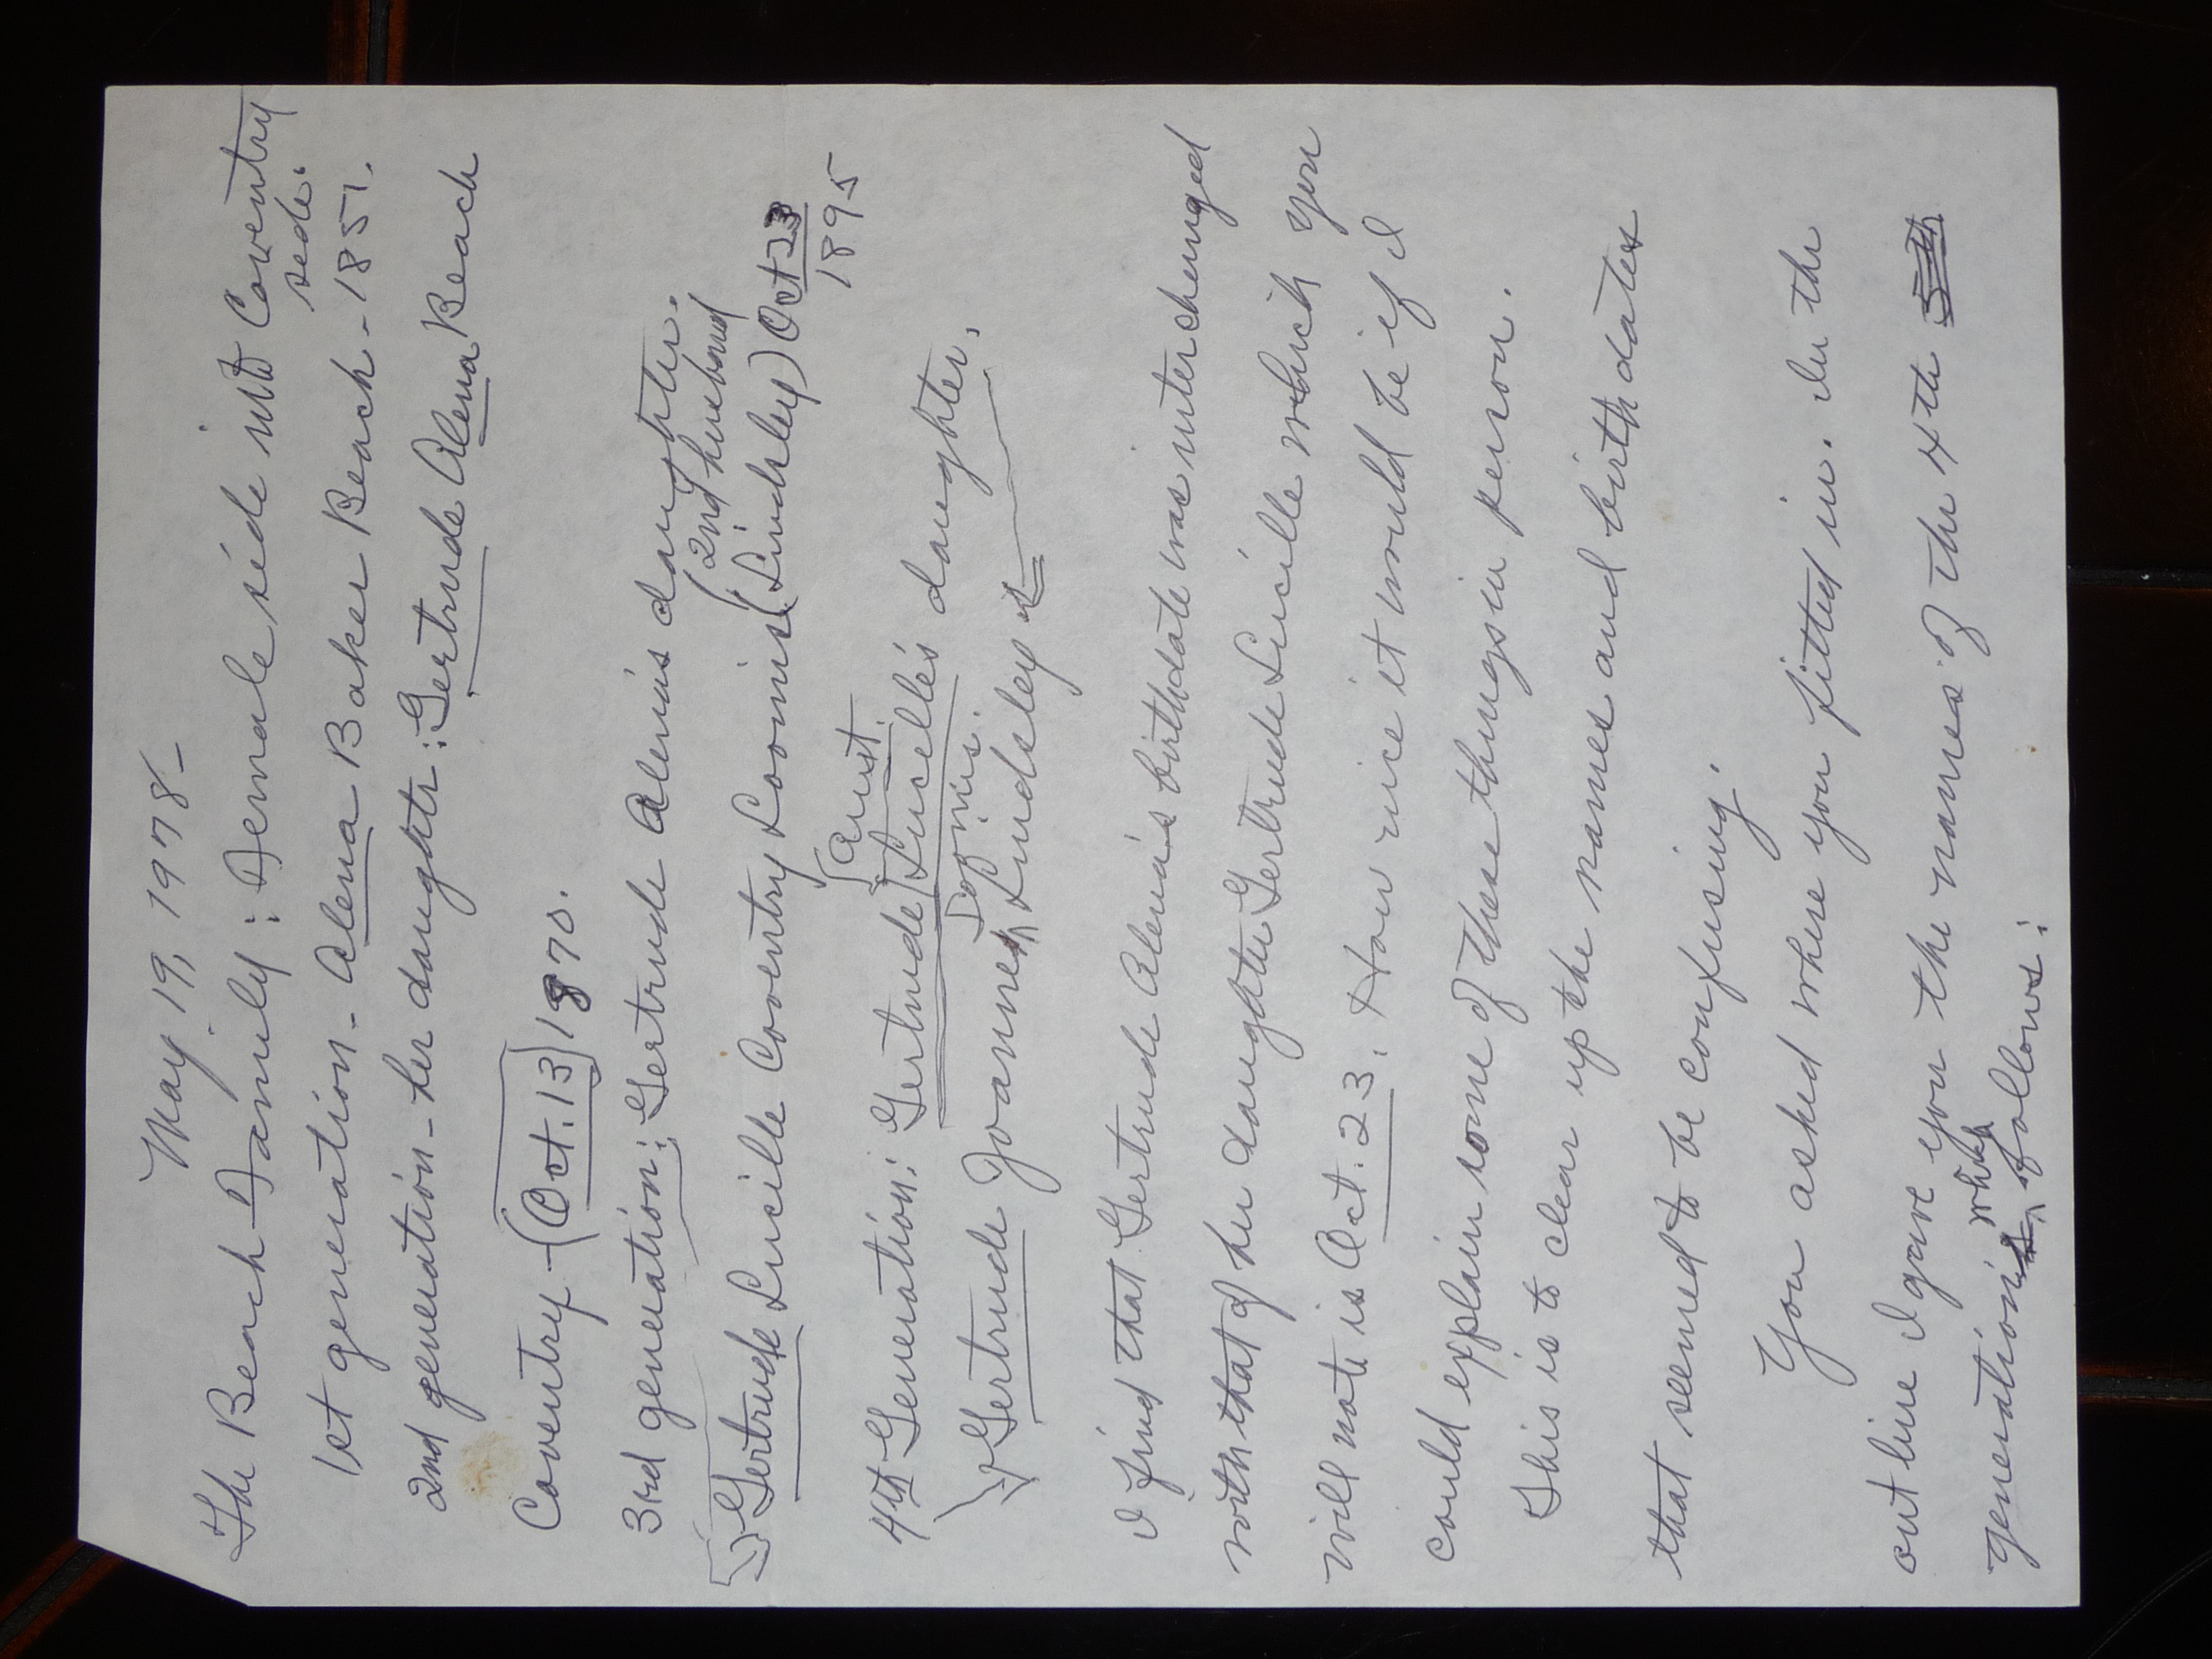 May 19, 1978-
The Beach Family: Female side into Coventry
side.
1st generation - Alena Baker Beach - 1851.
2nd generation - her daughtr: Gertrude Alena Beach
Coventry - (Oct. 13) 1870.
3rd generation: Gertrude Alena's daughter.
(2nd husband
Gertrude Lucille Coventry Loomis (Lindsley) Oct 23
1895
Aunt
4th Generation: Gertrude Lucille's daughter,
Loomis
Gertrude Joanne Lindsley
I find that Gertrude Alena's birthdate was interchanged
with that of her daughter Gertrude Lucille which you
will note is Oct. 23. How nice it would be if I
could explain some of these things in person.
This is to clear up the names and birth dates
that seemed to be confusing.
You asked where you fitted in. In the
out line I gave you the names of the 4th 5th
which
generation follows: